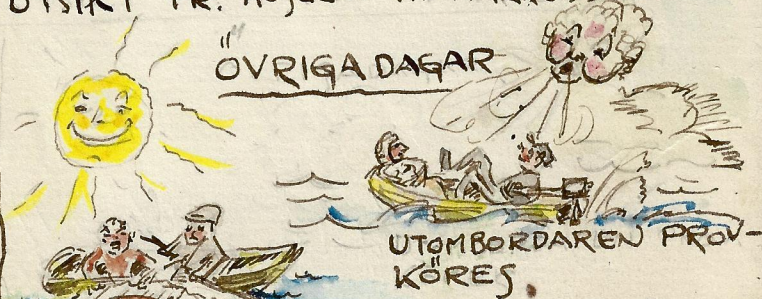 UTSIKT FR.
ÖVRIGA DAGAR
UTOMBORDAREN PROV-
KÖRES.